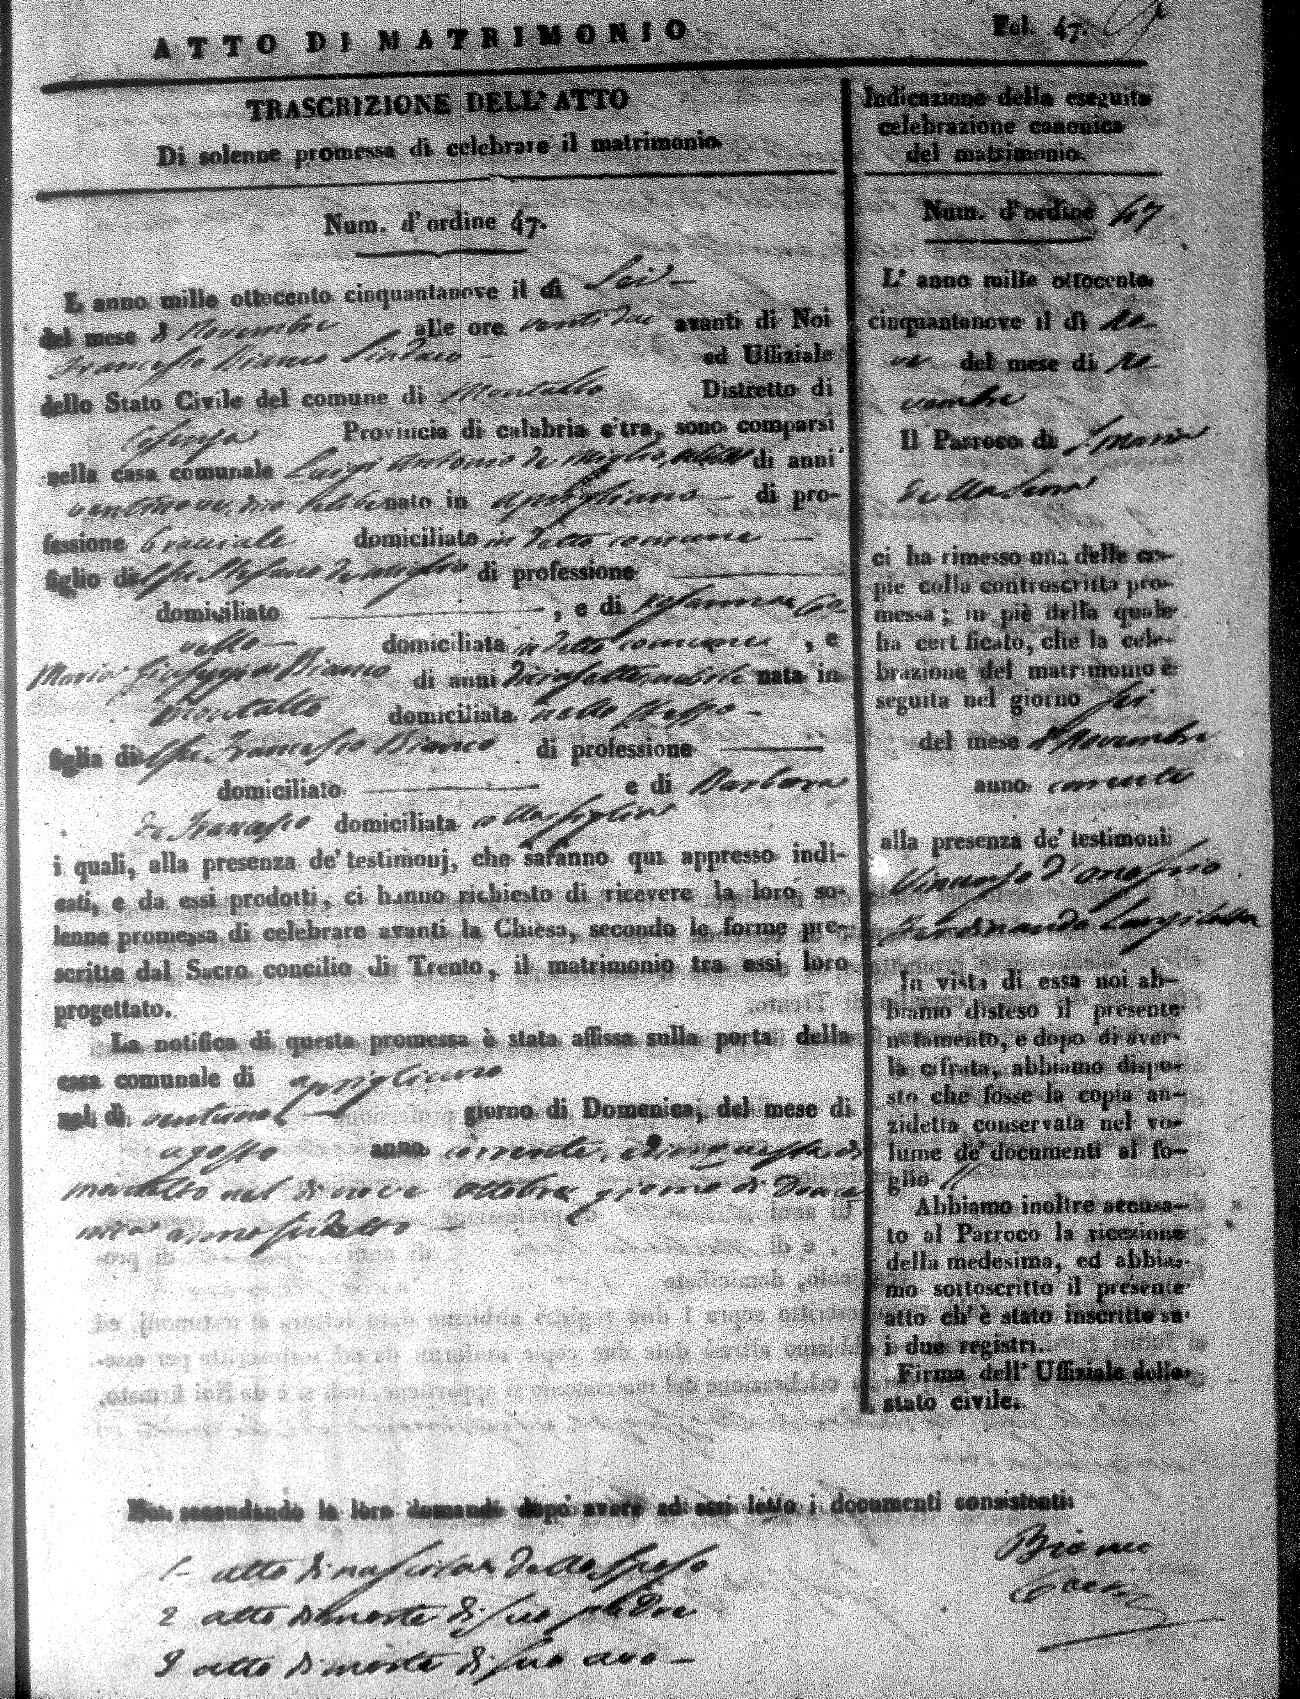 ATTO DI MATRIMONIO
Fol. 47.
TRASCRIZIONE DELL' ATTO
Di solenne promessa di celebrare il matrimonio.
Num. d'ordine 47.
L anno mille ottocento cinquantanove il dì Sei
del mese di Novembre alle ore venti due avanti di Noi
Francesco Bianco Sindaco ed Uffiziale
dello Stato Civile del comune di Montalto Distretto di
Cosenza Provincia di calabria citra, sono comparsi
nella casa comunale Luigi Antonio de Miglio di anni
ventinove nato in Aprigliano di pro-
fessione bracciale domiciliato in detto comune
figlio di Stefano de Miglio di professione
domiciliato , e di
domiciliata in detto comune , e
Maria Giuseppa Bianco di anni diciasette, nubile nata in
Montalto domiciliata nello stesso
figlia di Francesco Bianco di professione
domiciliato e di Barbara
de Francesco domiciliata colla figlia
i quali, alla presenza de' testimonj, che saranno qui appresso indi-
cati, e da essi prodotti, ci hanno richiesto di ricevere la loro so-
lenne promessa di celebrare avanti la Chiesa, secondo le forme pre-
scritte dal Sacro concilio di Trento, il matrimonio tra essi loro
progettato.
La notifica di questa promessa è stata affissa sulla porta della
casa comunale di Aprigliano
nel dì ventuno giorno di Domenica, del mese di
agosto anno corrente, e in questa di
Montalto nel dì nove ottobre giorno di Dome
nica anno sudetto
Noi secondando la loro domanda dopo avere ad essi letto i documenti consistenti
1- atto di nascita dello sposo
2 atto di morte di suo padre
3 atto di morte di suo avo
Indicazione della eseguita
celebrazione canonica
del matrimonio.
Num. d'ordine 47
L' anno mille ottocento
cinquantanove il dì no-
ve del mese di no-
vembre
Il Parroco di S. Maria
della Serra
ci ha rimesso una delle co-
pie colla controscritta pro-
messa; in piè della quale
ha certificato, che la cele-
brazione del matrimonio è
seguita nel giorno sei
del mese di Novembre
anno corrente
alla presenza de' testimoni
Vincenzo D'Onofrio
Ferdinando
In vista di essa noi ab-
biamo disteso il presente
notamento, e dopo di aver-
la cifrata, abbiamo dispo-
sto che fosse la copia an-
zidetta conservata nel vo-
lume de' documenti al fo-
glio
Abbiamo inoltre accusa-
to al Parroco la ricezione
della medesima, ed abbia-
mo sottoscritto il presente
atto ch' è stato inscritto su'
i due registri.
Firma dell' Uffiziale dello
stato civile.
Bianco